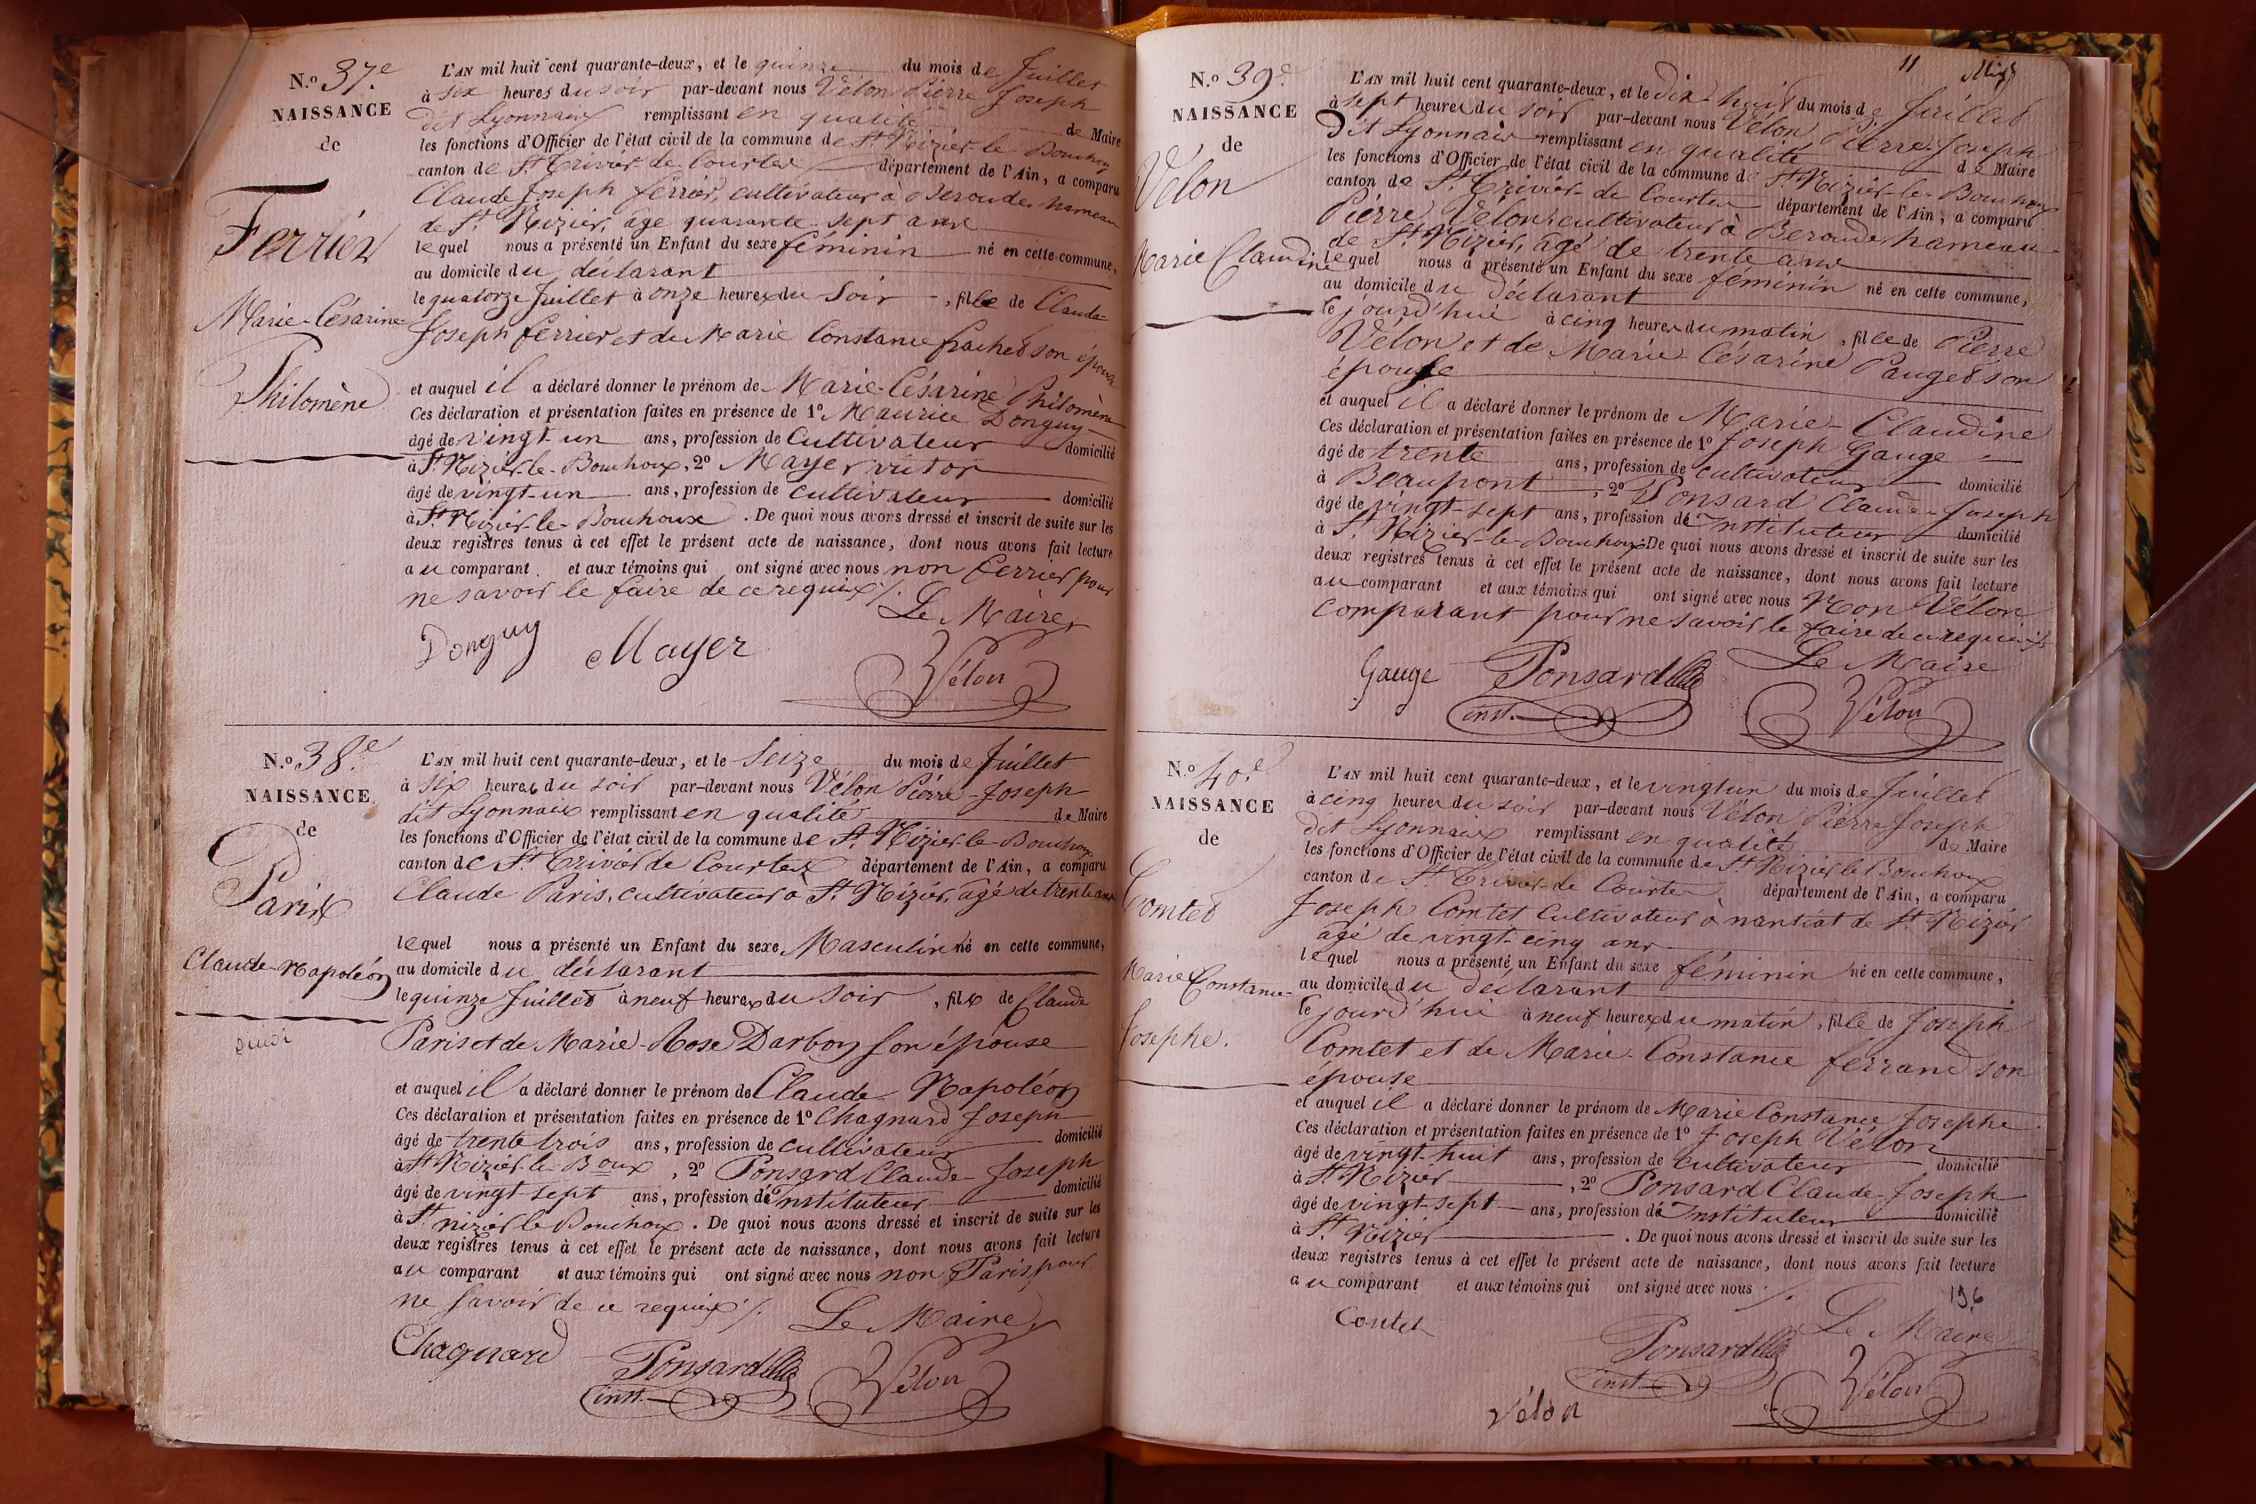 N.o 37e
NAISSANCE
de
Ferrier
Marie-Césarine
Philomène
L'AN mil huit cent quarante-deux, et le quinze du mois de Juillet
à six heures du soir par-devant nous Vélon Pierre Joseph
dit Lyonnais remplissant en qualité de Maire
les fonctions d'Officier de l'état civil de la commune de St Nizier-le-Bouchoux
canton de St Trivier de Courtes département de l'Ain, a comparu
Claude Joseph ferrier, cultivateur à Beroudes hameau
de St Nizier, âgé quarante sept ans
lequel nous a présenté un Enfant du sexe féminin né en cette commune,
au domicile du déclarant
le quatorze Juillet à onze heures du Soir, fille de Claude
Joseph ferrier et de Marie Constance frachet son épouse
et auquel il a déclaré donner le prénom de Marie-Césarine Philomène
Ces déclaration et présentation faites en présence de 1o Maurice Donguy
âgé de vingt-un ans, profession de Cultivateur domicilié
à St Nizier-le-Bouchoux, 2o Mayer victor
âgé de vingt-un ans, profession de cultivateur domicilié
à St Nizier-le-Bouchoux. De quoi nous avons dressé et inscrit de suite sur les
deux registres tenus à cet effet le présent acte de naissance, dont nous avons fait lecture
au comparant et aux témoins qui ont signé avec nous non ferrier pour
ne savoir le faire de ce requis /.
Le Maire
Donguy Mayer Vélon
N.o 38e
NAISSANCE
de
Paris
Claude-Napoléon
L'AN mil huit cent quarante-deux, et le Seize du mois de Juillet
à six heures du soir par-devant nous Vélon Pierre-Joseph
dit Lyonnais remplissant en qualité de Maire
les fonctions d'Officier de l'état civil de la commune de St Nizier-le-Bouchoux
canton de St Trivier de Courtes département de l'Ain, a comparu
Claude Paris, cultivateur à St Nizier, âgé de trente ans
lequel nous a présenté un Enfant du sexe Masculin né en cette commune,
au domicile du déclarant
le quinze Juillet à neuf heures du Soir, fils de Claude
Paris et de Marie-Rose Darbon son épouse
et auquel il a déclaré donner le prénom de Claude-Napoléon
Ces déclaration et présentation faites en présence de 1o Chagnard Joseph
âgé de trente trois ans, profession de cultivateur domicilié
à St Nizier-le-Boux, 2o Ponsard Claude-Joseph
âgé de vingt-sept ans, profession d'Instituteur domicilié
à St nizier le Bouchoux. De quoi nous avons dressé et inscrit de suite sur les
deux registres tenus à cet effet le présent acte de naissance, dont nous avons fait lecture
au comparant et aux témoins qui ont signé avec nous non Paris pour
ne savoir de ce requis /. Le Maire
Chagnard Ponsard Vélon
inst.
11
N.o 39e
NAISSANCE
de
Vélon
Marie Claudine
L'AN mil huit cent quarante-deux, et le dix-huit du mois de Juillet
à sept heures du soir par-devant nous Vélon Pierre-Joseph
dit Lyonnais remplissant en qualité de Maire
les fonctions d'Officier de l'état civil de la commune de St Nizier-le-Bouchoux
canton de St Trivier de Courtes département de l'Ain, a comparu
Pierre Vélon cultivateur à Beroudes hameau
de St Nizier, âgé de trente ans
lequel nous a présenté un Enfant du sexe féminin né en cette commune,
au domicile du déclarant
le jourd'hui à cinq heures du matin, fille de Pierre
Vélon et de Marie-Césarine Pauget son
épouse
et auquel il a déclaré donner le prénom de Marie-Claudine
Ces déclaration et présentation faites en présence de 1o Joseph Gauge
âgé de trente ans, profession de cultivateur domicilié
à Beaupont, 2o Ponsard Claude-Joseph
âgé de vingt-sept ans, profession d'Instituteur domicilié
à St Nizier-le-Bouchoux. De quoi nous avons dressé et inscrit de suite sur les
deux registres tenus à cet effet le présent acte de naissance, dont nous avons fait lecture
au comparant et aux témoins qui ont signé avec nous Non Vélon
comparant pour ne savoir le faire de ce requis /.
Le Maire
Gauge Ponsard Vélon
inst.
N.o 40e
NAISSANCE
de
Comtet
Marie Constance
Josephe.
L'AN mil huit cent quarante-deux, et le vingt un du mois de Juillet
à cinq heures du soir par-devant nous Vélon Pierre Joseph
dit Lyonnais remplissant en qualité de Maire
les fonctions d'Officier de l'état civil de la commune de St Nizier le Bouchoux
canton de St Trivier de Courtes département de l'Ain, a comparu
Joseph Comtet Cultivateur à nantiat de St Nizier
âgé de vingt-cinq ans
lequel nous a présenté un Enfant du sexe féminin né en cette commune,
au domicile du déclarant
le jourd'hui à neuf heures du matin, fille de Joseph
Comtet et de Marie-Constance ferrand son
épouse
et auquel il a déclaré donner le prénom de Marie Constance Josephe
Ces déclaration et présentation faites en présence de 1o Joseph Vélon
âgé de vingt-huit ans, profession de cultivateur domicilié
à St Nizier, 2o Ponsard Claude-Joseph
âgé de vingt-sept ans, profession d'Instituteur domicilié
à St Nizier. De quoi nous avons dressé et inscrit de suite sur les
deux registres tenus à cet effet le présent acte de naissance, dont nous avons fait lecture
au comparant et aux témoins qui ont signé avec nous /.
Contet Ponsard Le Maire
inst. Vélon
Vélon